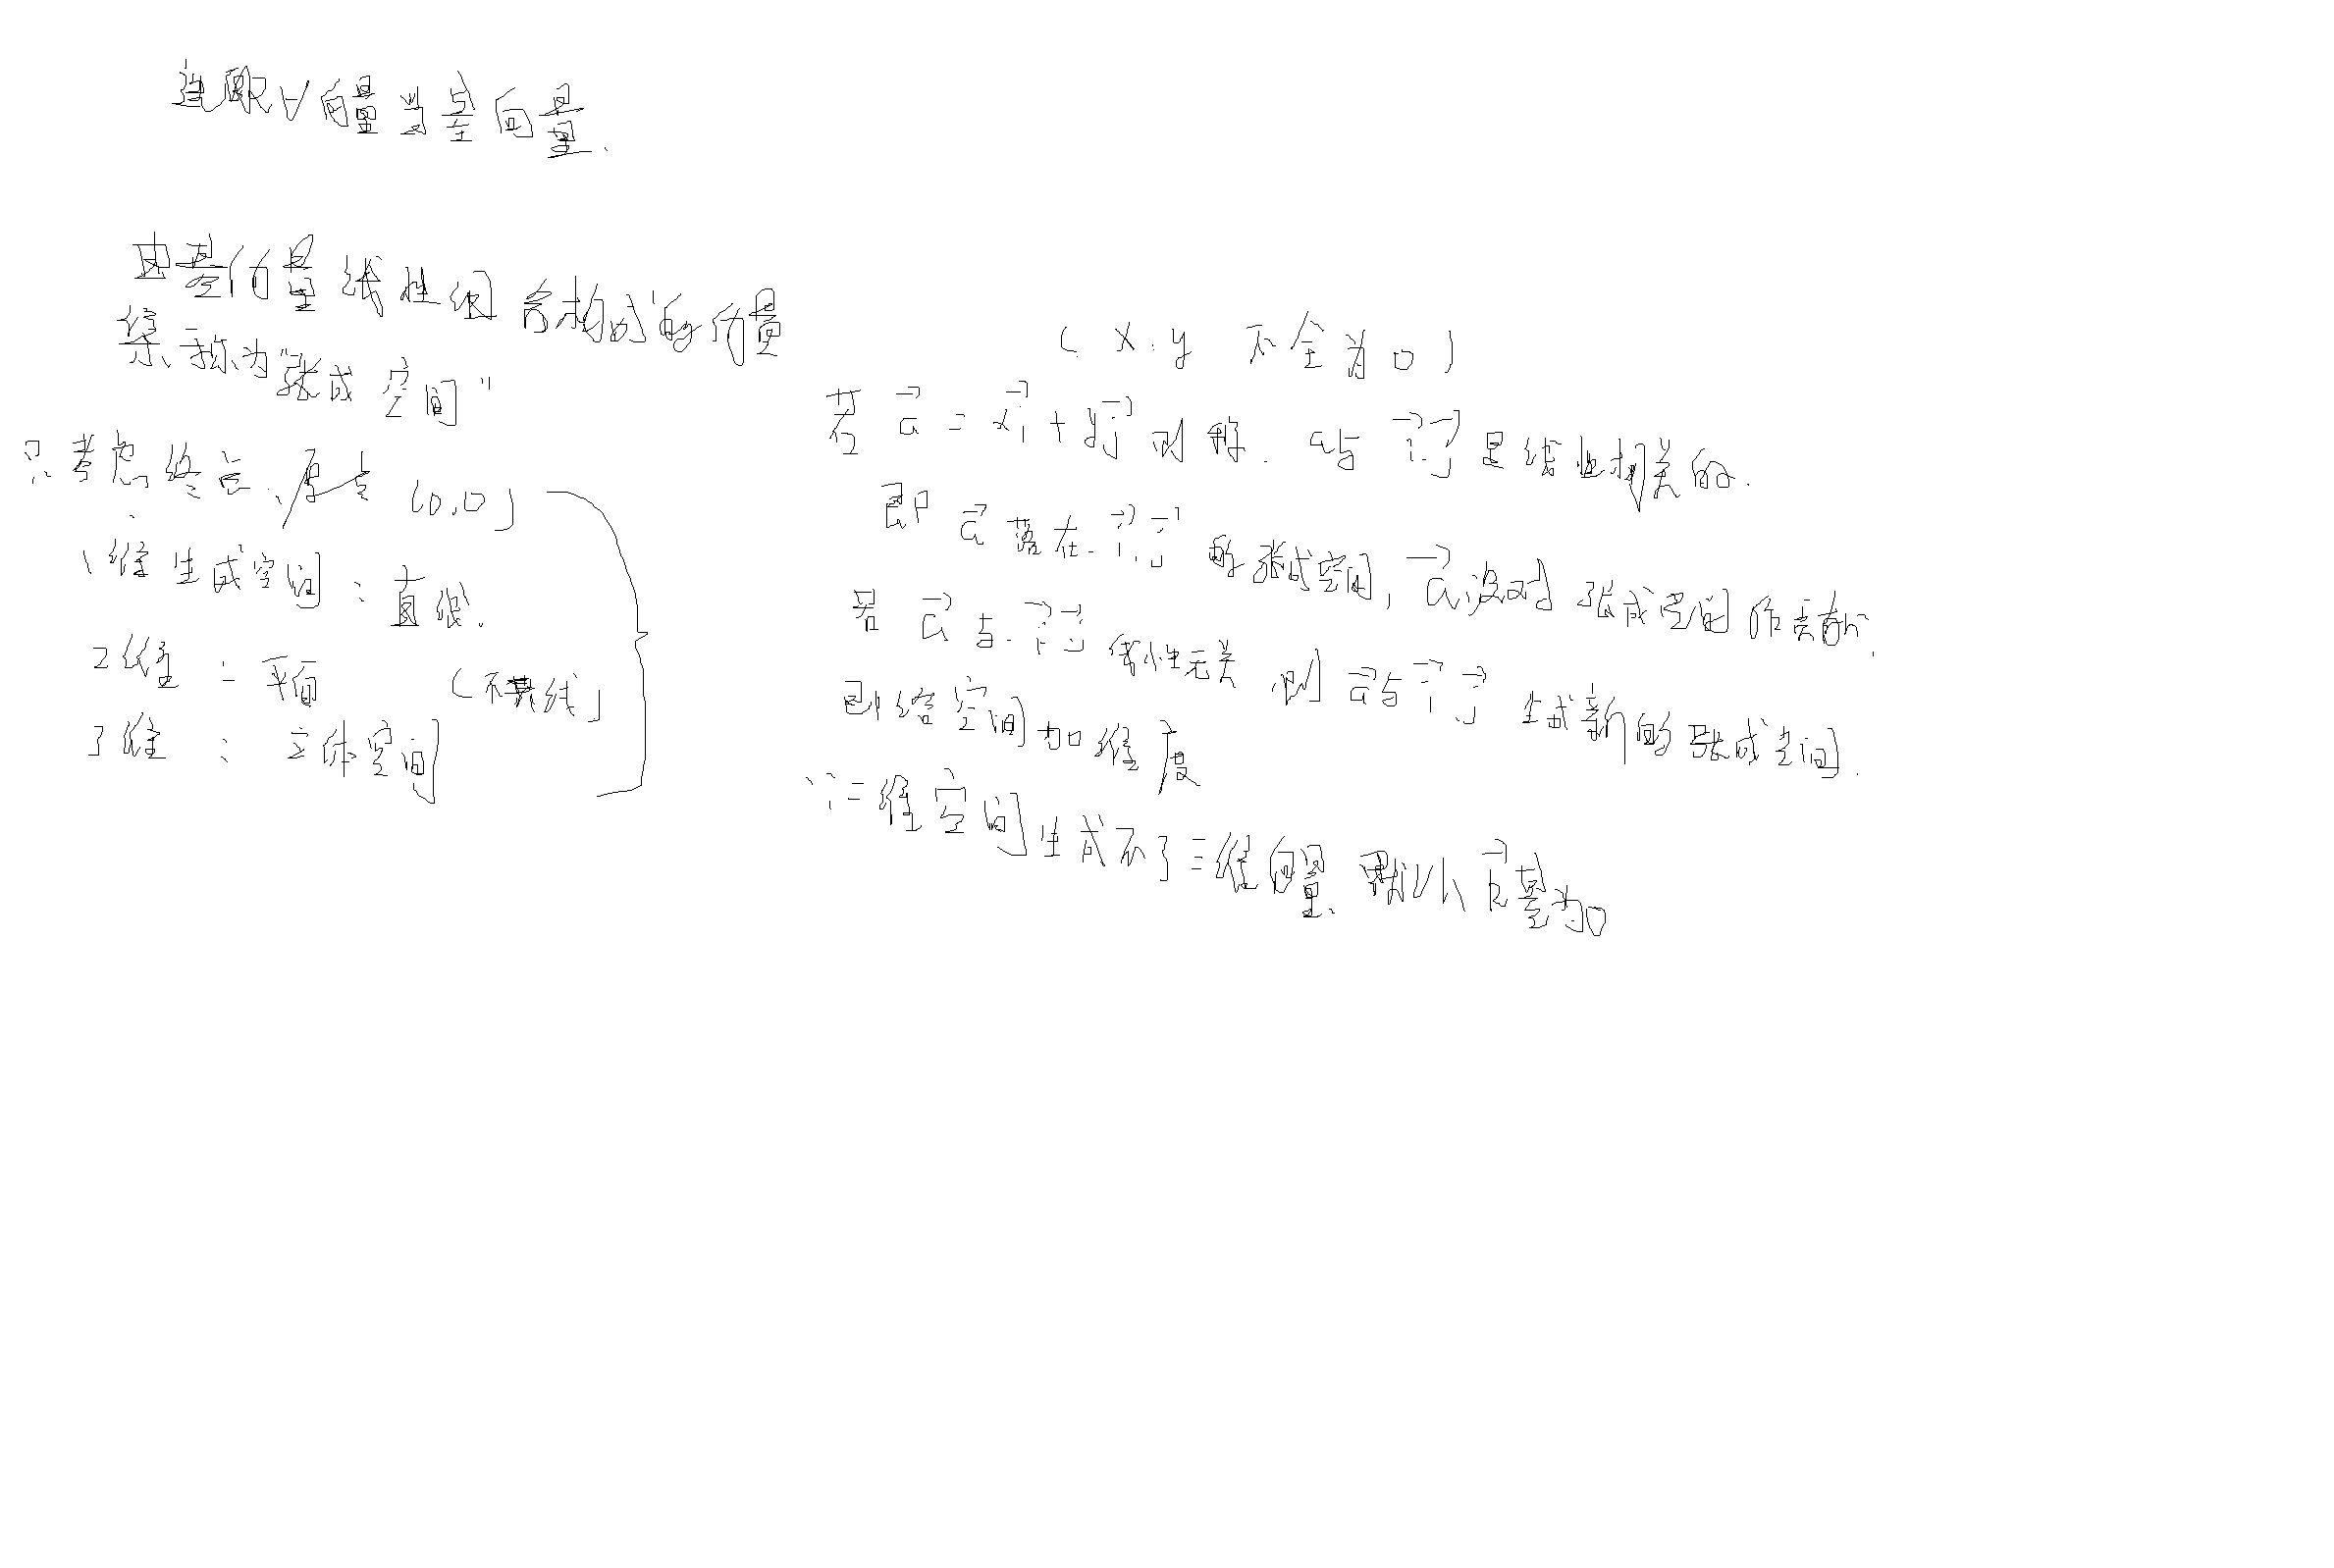 选取∀向量当基向量.
由基向量线性组合构成的向量
集、称为"张成空间"
只考虑终点、原点(0,0)
1维生成空间：直线.
2维：平面 (不共线)
3维：立体空间
(x.y 不全为0)
若 a⃗ = xi⃗ + yj⃗ 则称. a与 i⃗.j⃗ 是线性相关的.
即 a⃗ 落在 i⃗.j⃗ 的张成空间, a⃗没对张成空间作贡献.
若 a⃗与 i⃗ j⃗ 线性无关 则 a⃗与 i⃗.j⃗ 生成新的张成空间.
即给空间加维度
∵二维空间生成不了三维向量. 默认 k⃗基为0